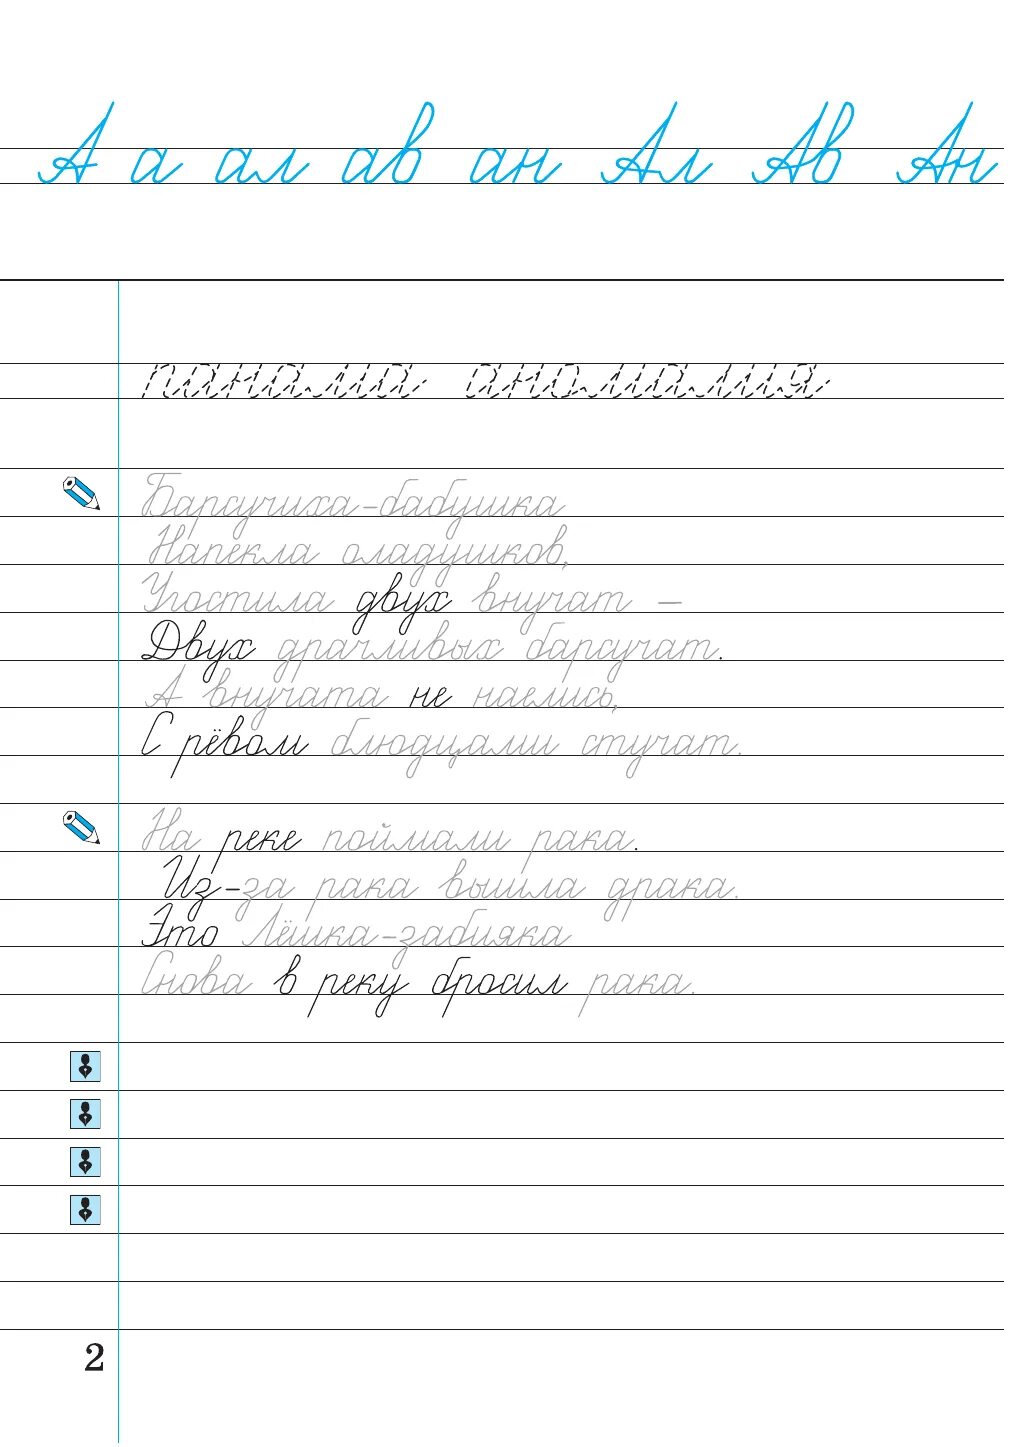 А а ал ав ан Ал Ав Ан
панама аномалия
Барсучиха-бабушка
Напекла оладушков,
Угостила двух внучат –
Двух драчливых барсучат.
А внучата не наелись,
С рёвом блюдцами стучат.
На реке поймали рака.
Из-за рака вышла драка.
Это Лёшка-забияка
Снова в реку бросил рака.
2